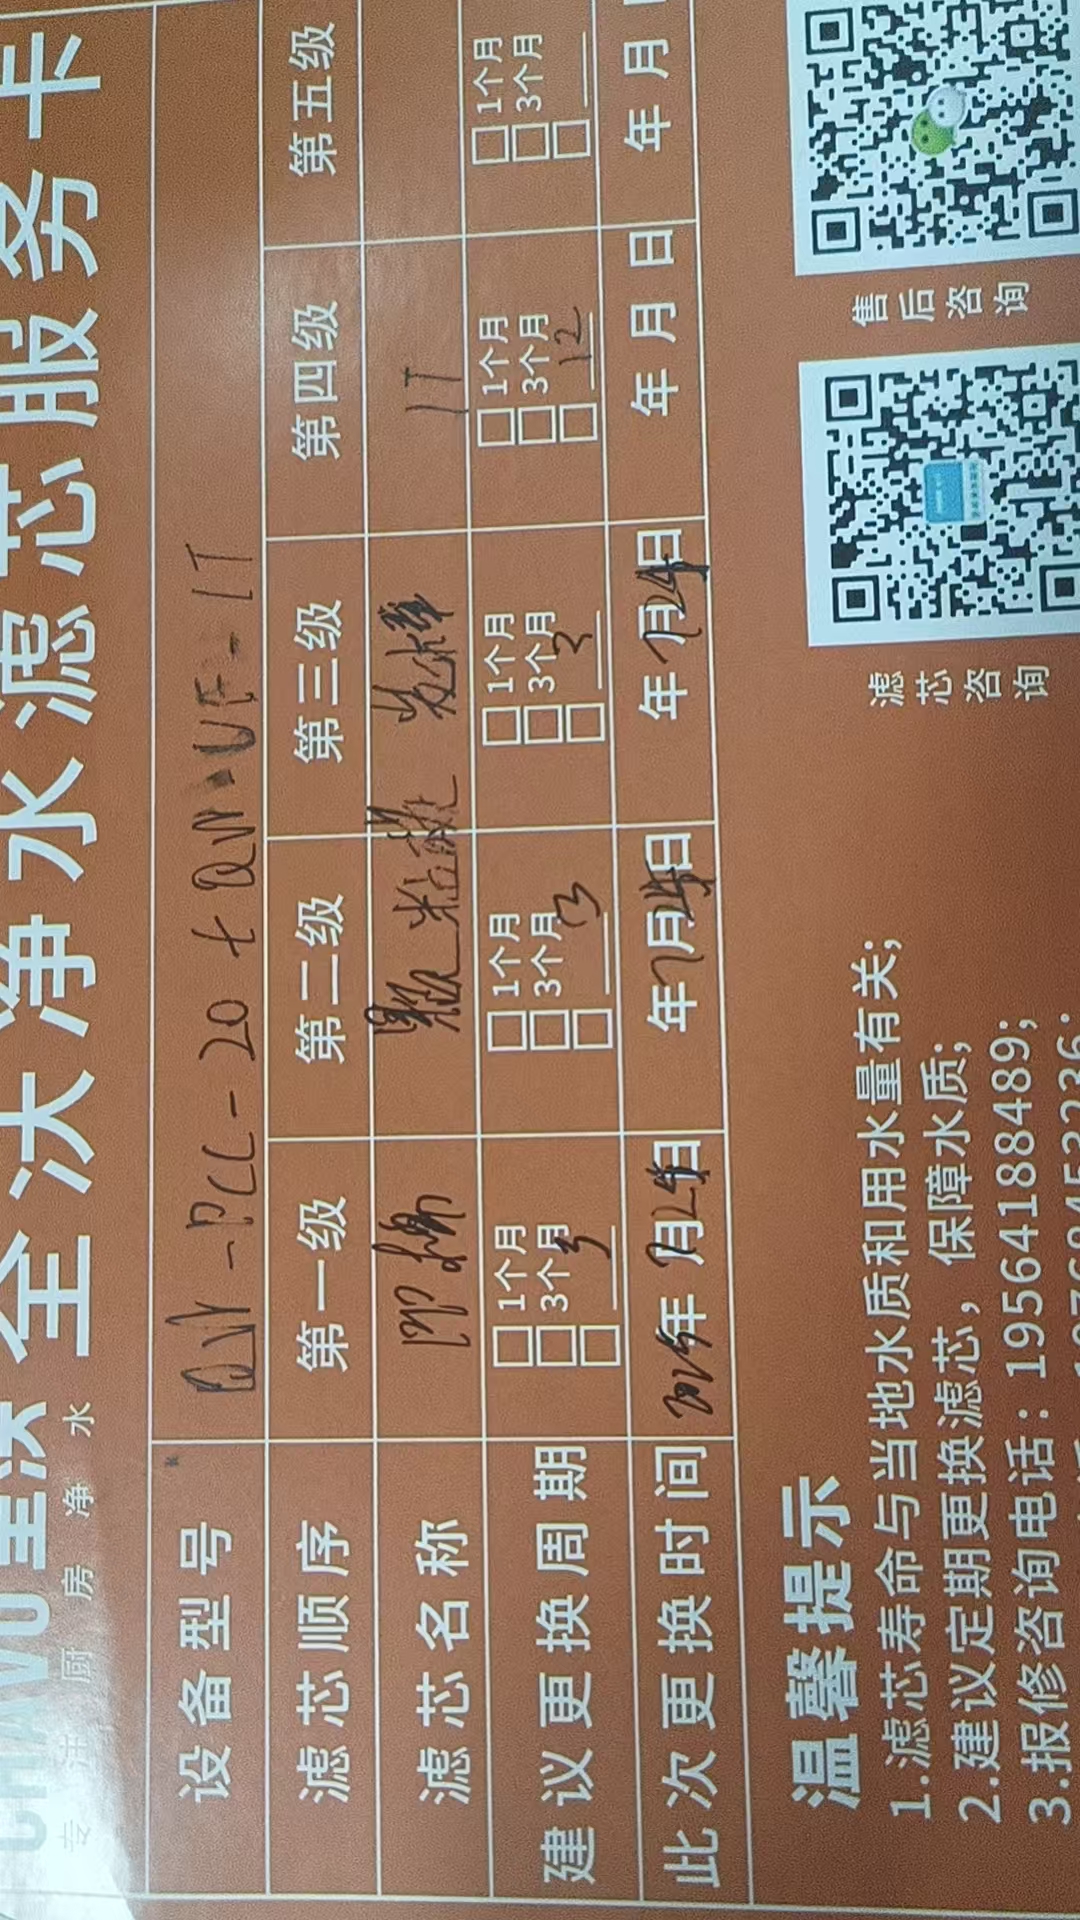 全沃净水滤芯服务卡
专注厨房净水
设备型号 QW-PCC-20+QW-UF-1T
滤芯顺序 第一级 第二级 第三级 第四级 第五级
滤芯名称 PP棉 颗粒碳 1T
建议更换周期 1个月 1个月 1个月 1个月 1个月
3个月 3个月 3个月 3个月 3个月
3 3 3 12
此次更换时间 2025年7月24日 年7月24日 年7月24日 年 月 日 年 月
温馨提示
1.滤芯寿命与当地水质和用水量有关;
2.建议定期更换滤芯，保障水质;
3.报修咨询电话：19564188489;
滤芯咨询
售后咨询